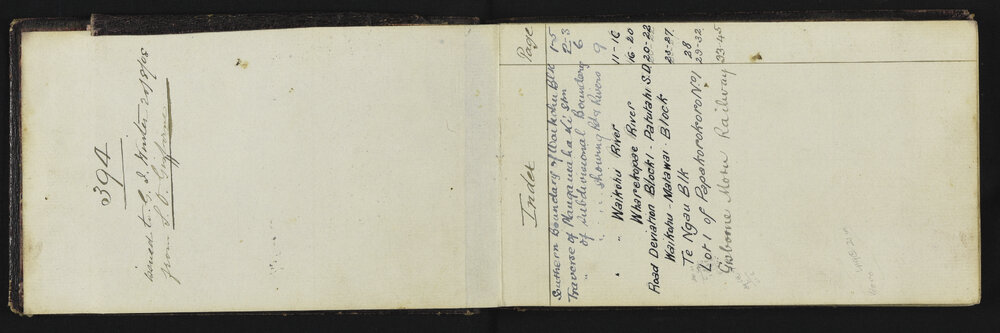 394
issued to C. J. Winter 20/8/08
from L. O. Gisborne
Index Page
Southern Boundary of Waikohu Blk 1-5
Traverse of Mangamaha Stm 2-3
" of Subdivisional Boundary 6
" " showing Rivers 9
" Waikohu River 11-16
" Wharekopae River 16-20
Road Deviation Block 1 - Patutahi S.D. 20-22
Waikohu - Matawai Block 23-27
Te Ngau Blk 28
Lot 1 of Papakorokoro No 1 29-32
Gisborne Motu Railway 33-45